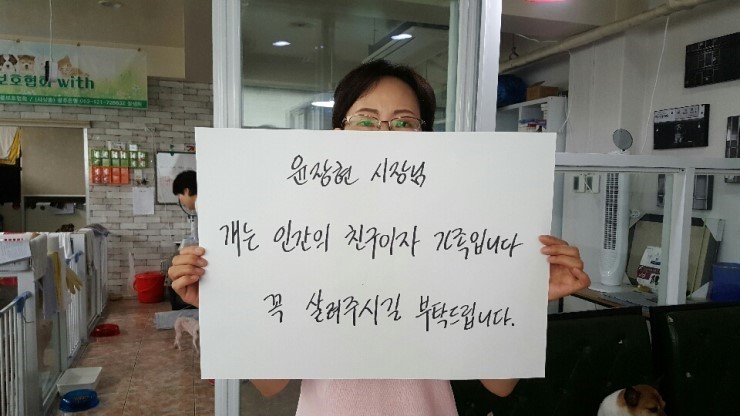 보호협회 with
윤장현 시장님
개는 인간의 친구이자 가족입니다
꼭 살려주시길 부탁드립니다.